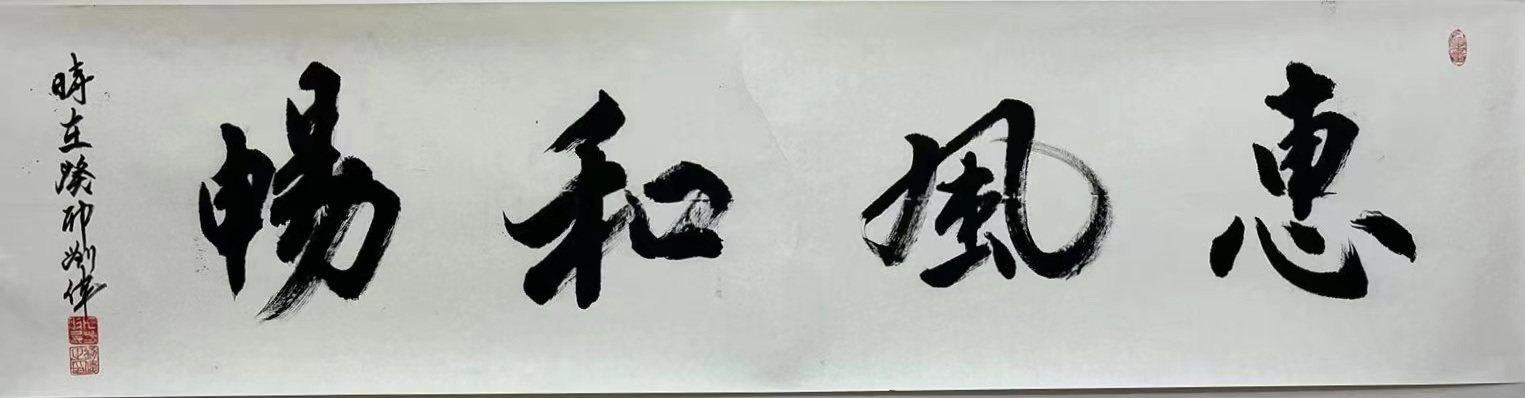 惠風和暢
時在癸卯劉偉